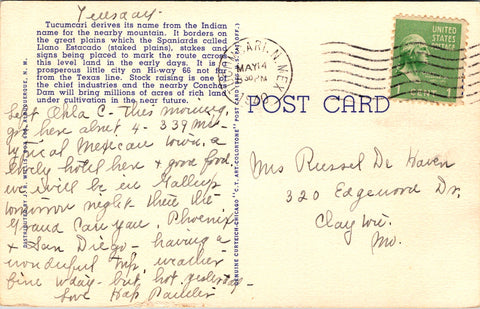 Tuesday.
Tucumcari derives its name from the Indian
name for the nearby mountain. It borders on
the great plains which the Spaniards called
Llano Estacado (staked plains), stakes and
signs being placed to mark the route across
this level land in the early days. It is a
prosperous little city on Hi-way 66 not far
from the Texas line. Stock raising is one of
the chief industries and the nearby Conchas
Dam will bring millions of acres of rich land
under cultivation in the near future.
Left Okla C - this morning,
got here about 4 - 339 mi -
typical Mexican town, a
lovely hotel here & good food
we will be in Gallup
tomorrow night then the
Grand Canyon, Phoenix
& San Diego - having a
wonderful trip, weather
fine today - but hot yesterday -
Love
DISTRIBUTED BY ALBUQUERQUE, N. M.
GENUINE CURTEICH-CHICAGO "C.T. ART-COLORTONE" POST CARD (REG. U.S. PAT. OFF.)
N. MEX.
MAY 14
30 PM
UNITED
STATES
POSTAGE
1 CENT 1
POST CARD
Mrs Russel De Haven
320 Edgewood Dr.
Clayton
Mo.